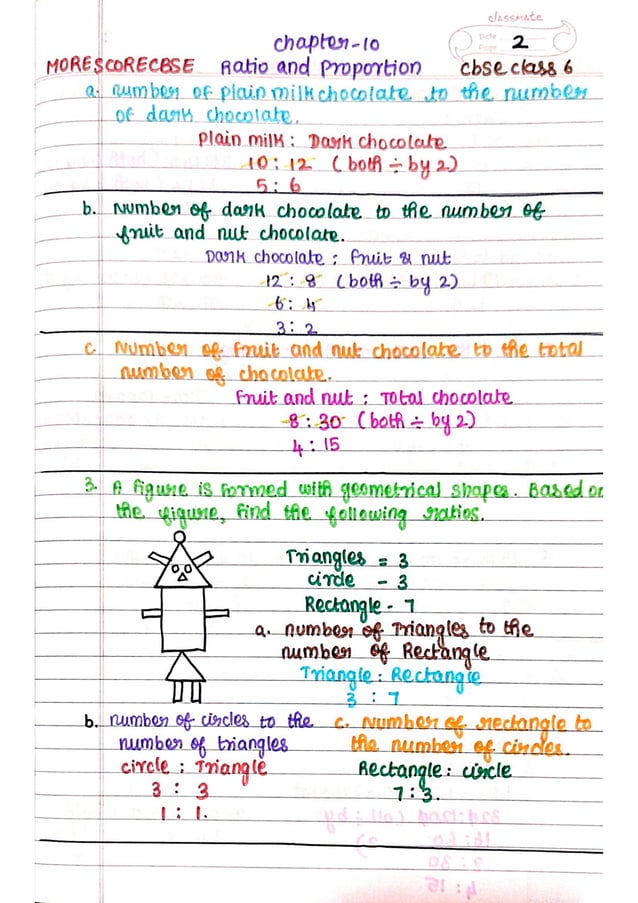 classmate
Date
Page
2
chapter-10
MORESCORECBSE Ratio and Proportion cbse class 6
a. number of plain milk chocolate to the number
of dark chocolate.
plain milk : Dark chocolate
10 : 12 (both ÷ by 2)
5 : 6
b. Number of dark chocolate to the number of
fruit and nut chocolate.
Dark chocolate : fruit & nut
12 : 8 (both ÷ by 2)
6 : 4
3 : 2
c. Number of Fruit and nut chocolate to the total
number of chocolate.
Fruit and nut : Total chocolate
8 : 30 (both ÷ by 2)
4 : 15
3. A figure is formed with geometrical shapes. Based on
the figure, find the following ratios.
Triangles = 3
circle - 3
Rectangle - 7
a. number of Triangles to the
number of Rectangle
Triangle : Rectangle
3 : 7
b. number of circles to the
number of triangles
circle : Triangle
3 : 3
1 : 1.
c. Number of rectangle to
the number of circles.
Rectangle : circle
7 : 3.